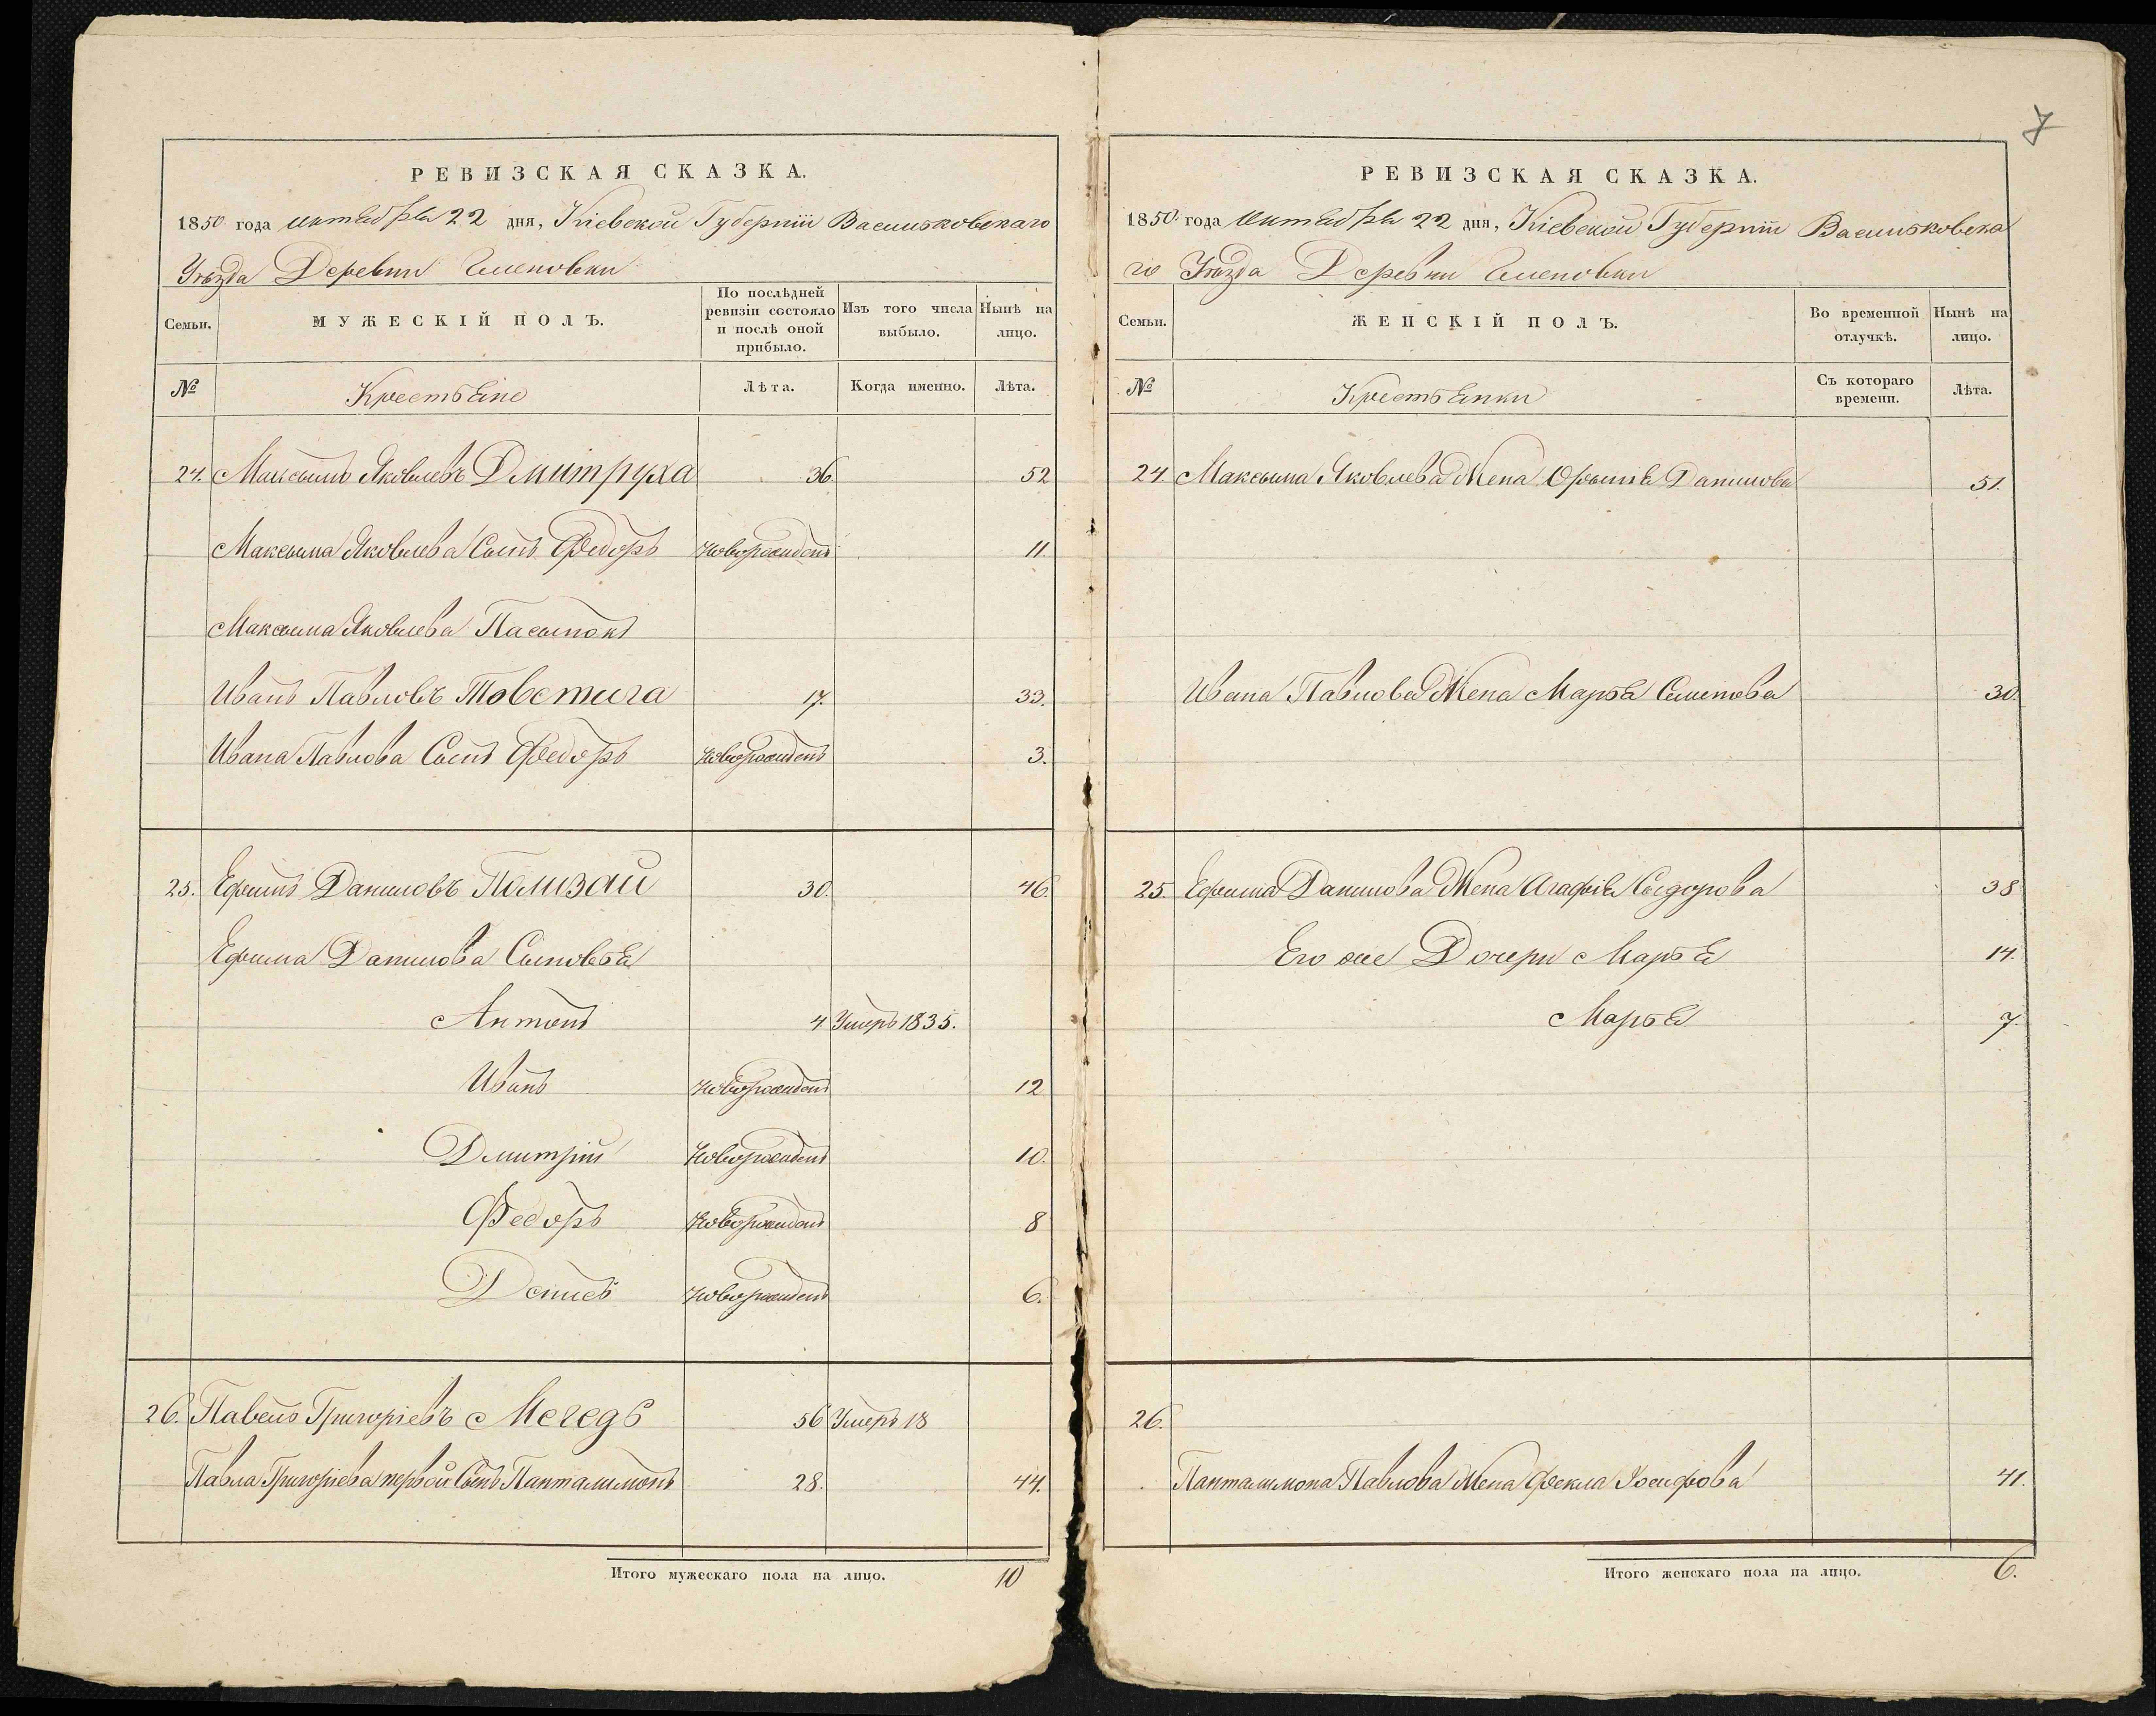 7
РЕВИЗСКАЯ СКАЗКА.
1850 года октября 22 дня, Кіевской Губерніи Васильковскаго
Уѣзда Деревни
Семьи.
МУЖЕСКІЙ ПОЛЪ.
По послѣдней ревизіи состояло и послѣ оной прибыло.
Изъ того числа выбыло.
Нынѣ на лицо.
№
Крестьяне
Лѣта.
Когда именно.
Лѣта.
24. Максымъ Яковлевъ Дмитруха 36. 52
Максыма Яковлева Сынъ Федоръ Новорожденъ 11
Максыма Яковлева Пасынокъ
Иванъ Павловъ Товстига 17. 33.
Ивана Павлова Сынъ Федоръ Новорожденъ 3.
25. Ефимъ Даниловъ Полизай 30. 46.
Ефима Данилова Сыновья
Антонъ 4 Умеръ 1835.
Иванъ Новорожденъ 12
Дмитрій Новорожденъ 10.
Федоръ Новорожденъ 8
Денисъ Новорожденъ 6.
26. Павелъ Григоріевъ Мегедь 56 Умеръ 18
Павла Григоріева первой Сынъ Панталимонъ 28. 44.
Итого мужескаго пола на лицо. 10
РЕВИЗСКАЯ СКАЗКА.
1850 года октября 22 дня, Кіевской Губерніи Васильковска
го Уѣзда Деревни
Семьи.
ЖЕНСКІЙ ПОЛЪ.
Во временной отлучкѣ.
Нынѣ на лицо.
№
Крестьянки
Съ котораго времени.
Лѣта.
24. Максыма Яковлева Жена Орышя Данилова 51.
Ивана Павлова Жена Марья Семенова 30.
25. Ефима Данилова Жена Агафія Сыдорова 38
Его же Дочери Марья 14.
Марья 7.
26.
Панталимона Павлова Жена Фекла Іосифова 41.
Итого женскаго пола на лицо. 6.